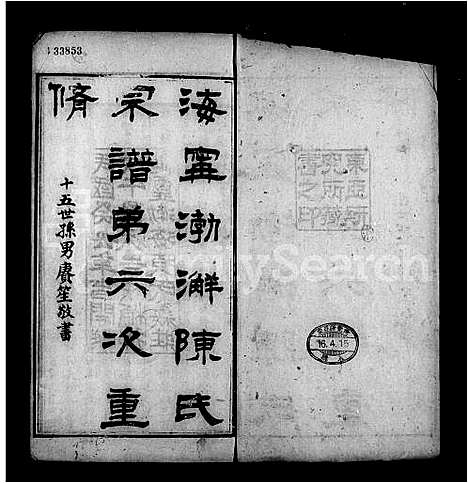 海寧渤澥陳氏
宗譜第六次重
脩
十五世孫男賡笙敬書
33853
東亞研
究所藏
書之印
16.4.15
FamilySearch